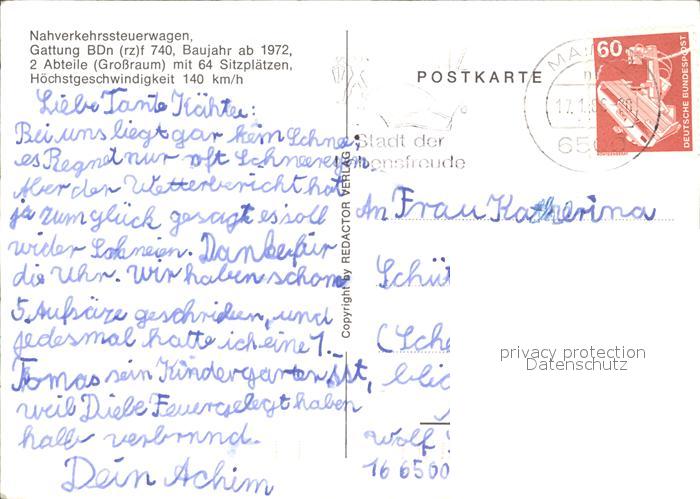 Nahverkehrssteuerwagen,
Gattung BDn (rz)f 740, Baujahr ab 1972,
2 Abteile (Großraum) mit 64 Sitzplätzen,
Höchstgeschwindigkeit 140 km/h
Liebe Tante Käthe:
Bei uns liegt gar kein Schne,
es Regnet nur oft Schneeregen.
Aber der Wetterbericht hat
ja zum glück gesagt es soll
wider Schneien. Danke für
die Uhr. Wir haben schon
5 Aufsäze geschriben, und
jedesmal hatte ich eine 1.
Tomas sein Kindergarten ist,
weil Diebe Feuer gelegt haben
halb verbrnnd.
Dein Achim
Copyright by REDACTOR VERLAG
POSTKARTE
Stadt der
60
DEUTSCHE BUNDESPOST
17.1.
An Frau Katherina
Schü
(Sche
Wolf
16 6500
privacy protection
Datenschutz